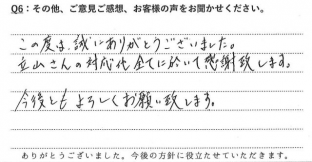 Q6：その他、ご意見ご感想、お客様の声をお聞かせください。
この度は、誠にありがとうございました。
立山さんの対応他全てに於いて感謝致します。
今後ともよろしくお願い致します。
ありがとうございました。今後の方針に役立たせていただきます。